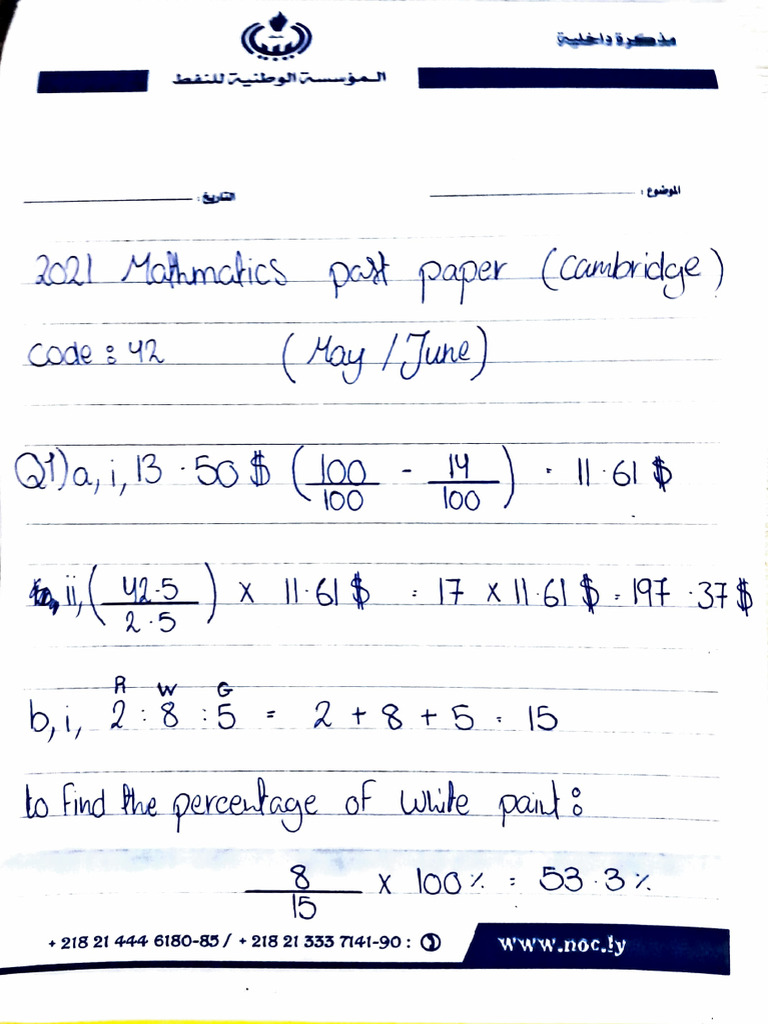 مذكرة داخلية
المؤسسة الوطنية للنفط
الموضوع :
التاريخ :
2021 Mathmatics past paper (cambridge)
code : 42 (May / June)
Q1) a, i, 13 · 50 $ (100/100 - 14/100) = 11 · 61 $
ii, (42·5/2·5) x 11·61 $ = 17 x 11·61 $ = 197 · 37 $
R W G
b, i, 2 : 8 : 5 = 2 + 8 + 5 = 15
to find the percentage of white paint :
8/15 x 100 % = 53 · 3 %
+ 218 21 444 6180-85 / + 218 21 333 7141-90 :
www.noc.ly